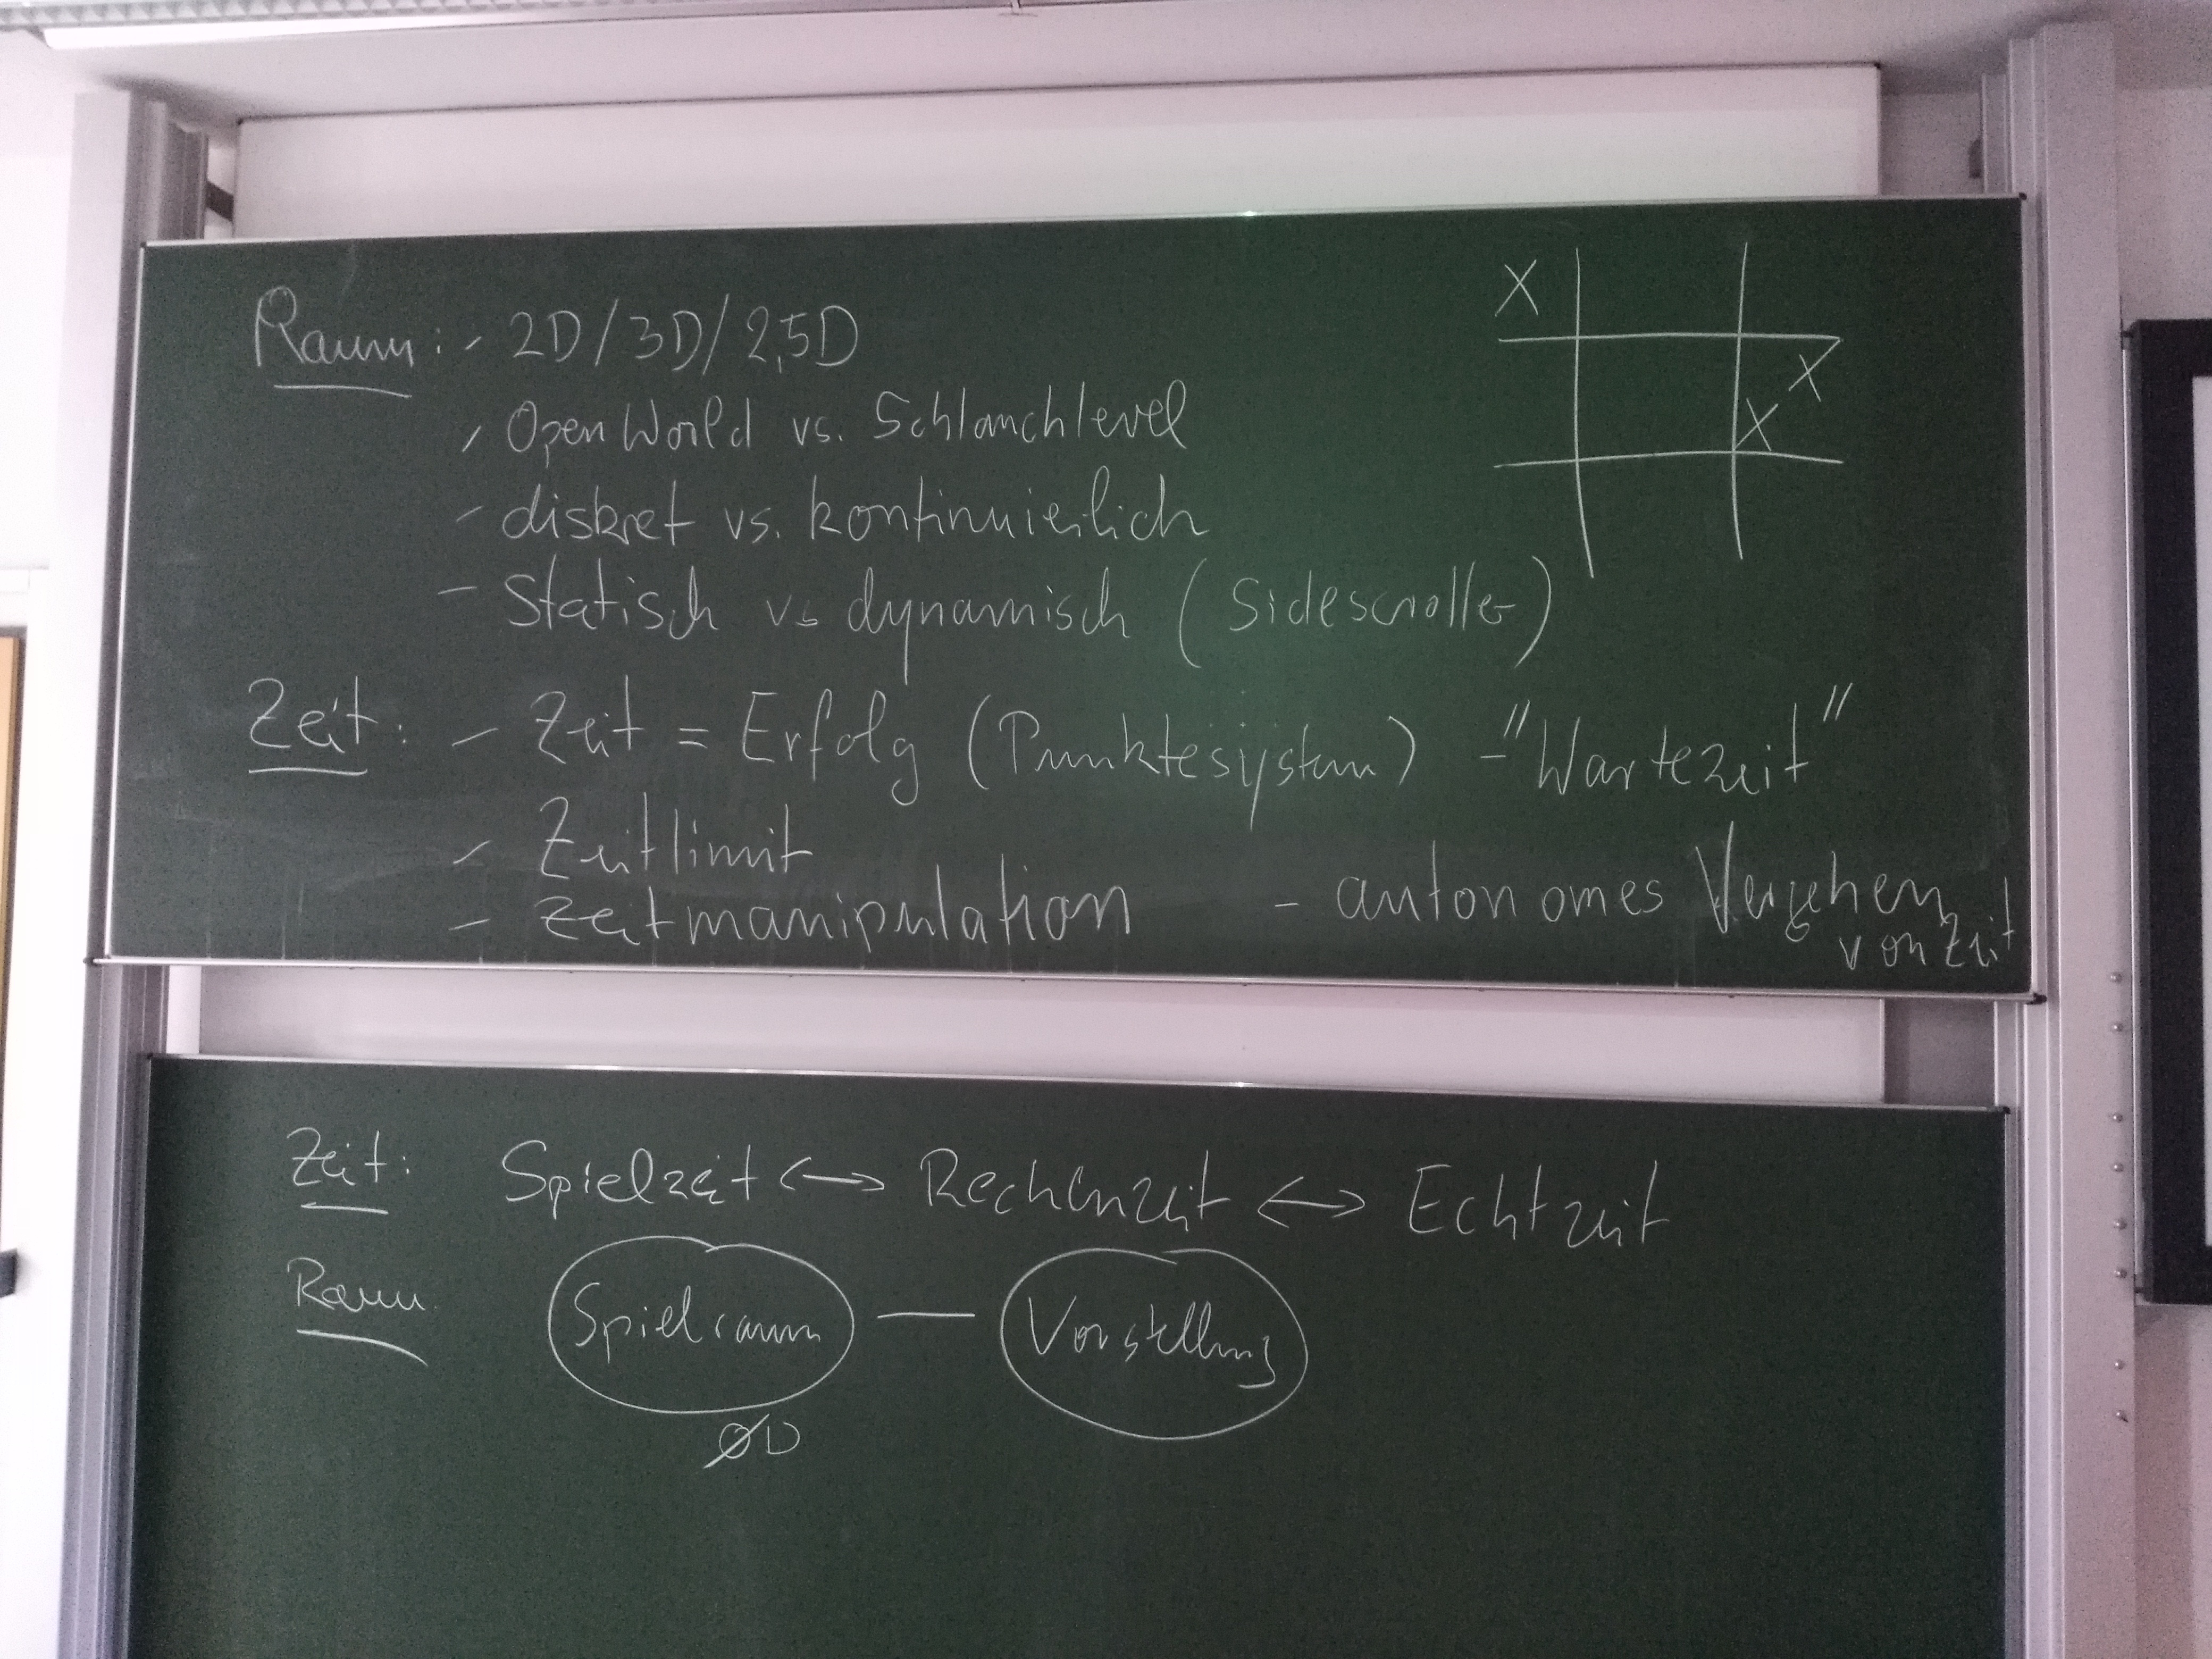 Raum: - 2D/3D/2,5D
- Open World vs. Schlauchlevel
- diskret vs. kontinuierlich
- Statisch vs dynamisch (Sidescroller)
X
X
X
Zeit: - Zeit = Erfolg (Punktesystem) - "Wartezeit"
- Zeitlimit
- Zeitmanipulation - autonomes Vergehen
von Zeit
Zeit: Spielzeit <-> Rechenzeit <-> Echtzeit
Raum Spielraum — Vorstellung
ØD